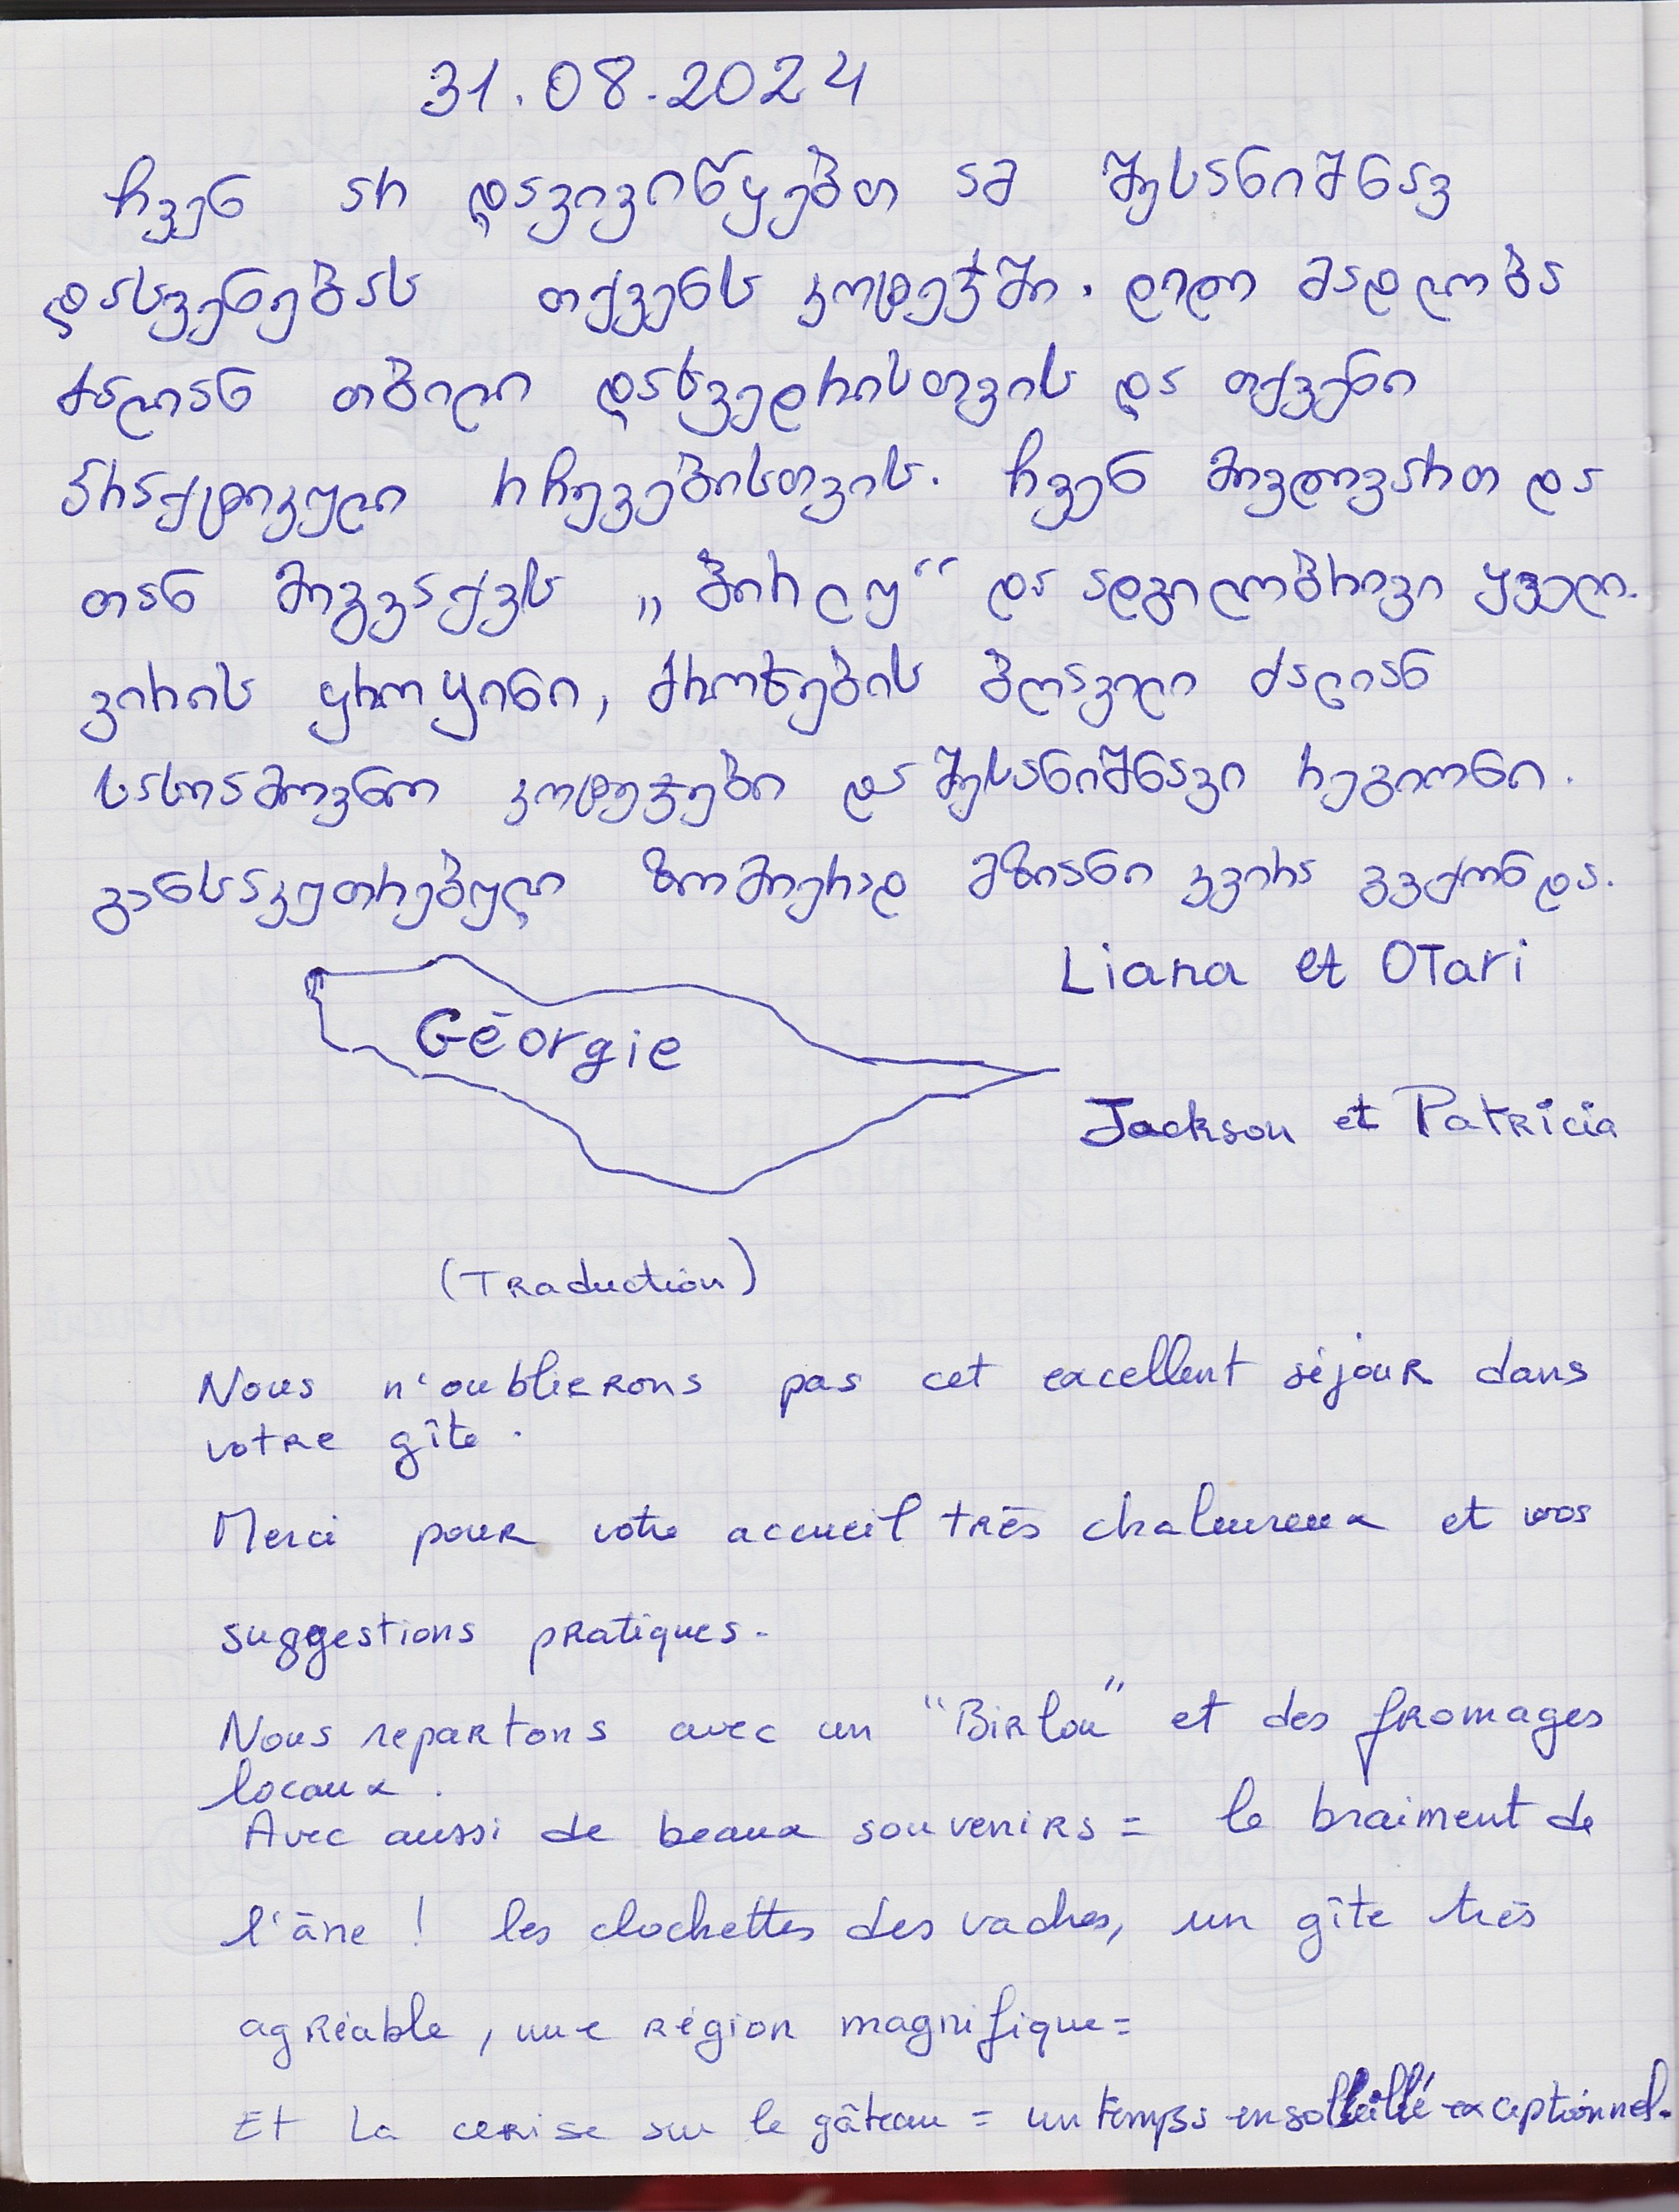 31.08.2024
ჩვენ არ დავივიწყებთ ამ შესანიშნავ
დასვენებას თქვენს კოტეჯში. დიდი მადლობა
ძალიან თბილი დახვედრისთვის და თქვენი
პრაქტიკული რჩევებისთვის. ჩვენ მივდივართ და
თან მიგვაქვს „ბირლუ“ და ადგილობრივი ყველი.
ვირის ყროყინი, ძროხების ბღავილი ძალიან
სასიამოვნო კოტეჯები და შესანიშნავი რეგიონი.
განსაკუთრებული ზომიერად მზიანი კვირა გვქონდა.
Liana et OTari
Géorgie
Jackson et Patricia
(Traduction)
Nous n'oublierons pas cet excellent séjour dans
votre gîte.
Merci pour votre accueil très chaleureux et vos
suggestions pratiques.
Nous repartons avec un "Birlou" et des fromages
locaux.
Avec aussi de beaux souvenirs = le braiment de
l'âne ! les clochettes des vaches, un gîte très
agréable, une région magnifique =
Et La cerise sur le gâteau = un temps ensoleillé exceptionnel.